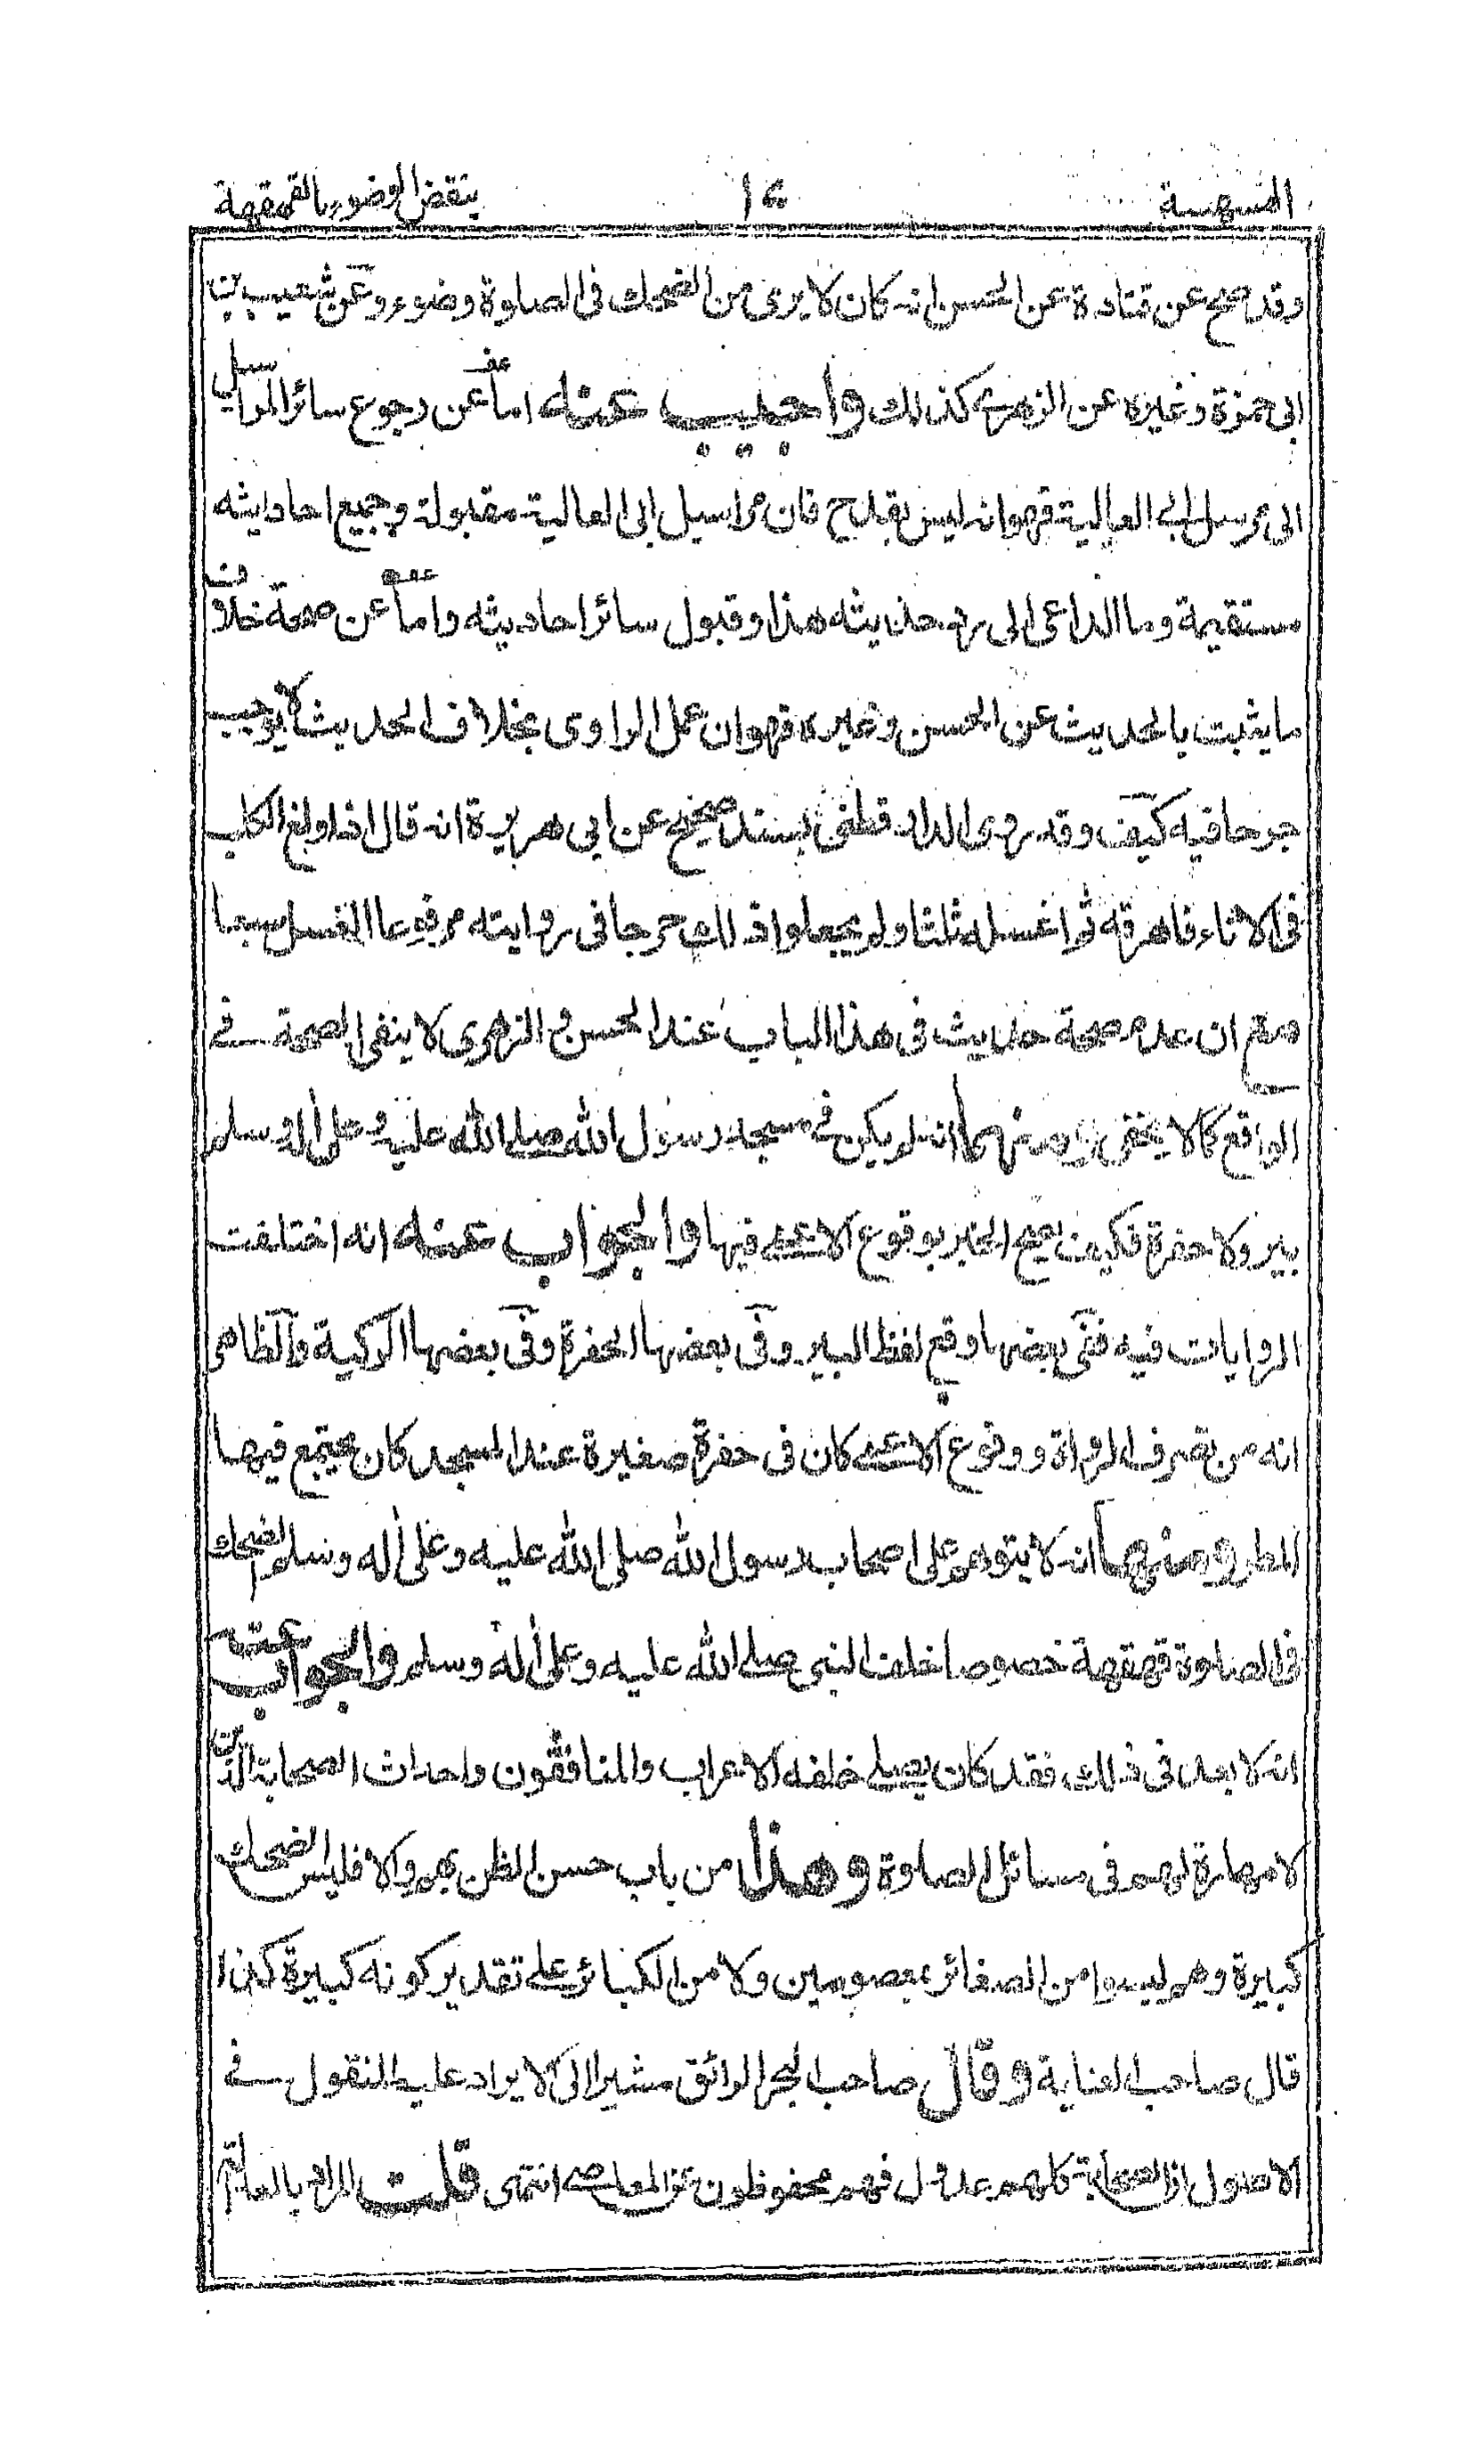 الهسهسة ١٤ بنقض الوضوء بالقهقهة
وقد صح عن قتادة عن الحسن انه كان لا يرى من الضحك فى الصلوة وضوء وعن شعيب بن
ابى حمزة وغيره عن الزهرى كذلك واجيب عنه اما عن رجوع سائر المراسيل
الى مرسل ابى العالية فهو انه ليس بقدح فان مراسيل ابى العالية مقبولة وجميع احاديثه
مستقيمة وما الداعى الى رد حديثه هذا وقبول سائر احاديثه واما عن صحة خلاف
ما يثبت بالحديث عن الحسن وغيره فهو ان عمل الراوى بخلاف الحديث لا يوجب
جرحا فيه كيف وقد روى الدار قطنى بسند صحيح عن ابى هريرة انه قال اذا ولغ الكلب
فى الاناء فاهرقه ثم اغسله ثلثا ولم يجعلوا ذلك جرحا فى روايته مرفوعا الغسل سبعا
مع ان عدم صحة حديث فى هذا الباب عند الحسن والزهرى لا ينفى الصحة فى
الواقع كما لا يخفى ومنهما انه لم يكن فى مسجد رسول الله صلى الله عليه وعلى اله وسلم
بير ولا حفرة فكيف يصح الخبر بوقوع الاعمى فيها والجواب عنه انه اختلفت
الروايات فيه ففى بعضها وقع لفظ البير وفى بعضها الحفرة وفى بعضها الركية والظاهر
انه من تصرف الرواة ووقوع الاعمى كان فى حفرة صغيرة عند المسجد كان يجتمع فيها
المطر ومنها انه لا يتوهم على اصحاب رسول الله صلى الله عليه وعلى اله وسلم الضحك
فى الصلوة قهقهة خصوصا خلف النبى صلى الله عليه وعلى اله وسلم والجواب عنه
انه لا بعد فى ذلك فقد كان يصلى خلفه الاعراب والمنافقون واحداث الصحابة الذين
لا مهارة لهم فى مسائل الصلوة وهذا من باب حسن الظن بهم والا فليس الضحك
كبيرة وهم ليسوا من الصغائر بمعصومين ولا من الكبائر على تقدير كونه كبيرة كذا
قال صاحب العناية وقال صاحب البحر الرائق مشيرا الى الايراد عليه المنقول فى
الاصول ان الصحابة كلهم عدول فهم محفوظون عن المعاصى انتهى قلت المراد بالعدالة